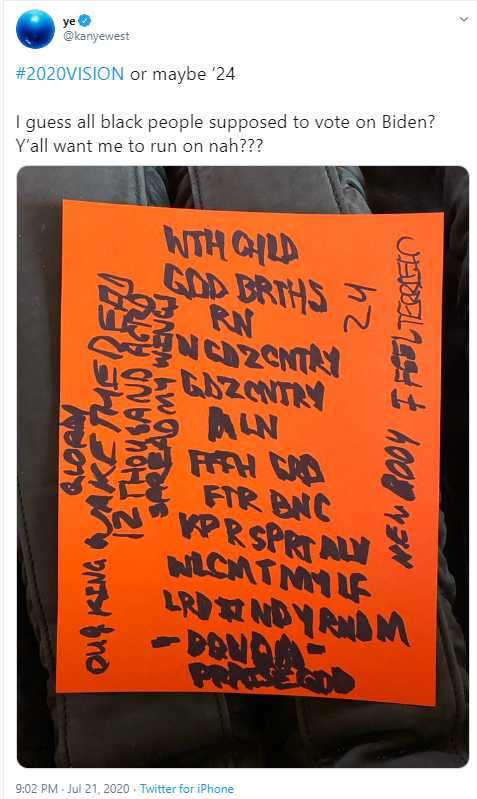 ye
@kanyewest
#2020VISION or maybe '24
I guess all black people supposed to vote on Biden?
Y'all want me to run on nah???
WTH CHLD
GOD BRTHS
RN
N GDZCNTRY
GDZCNTRY
ALN
FTR BNC
KP R SPRT ALV
WLCM T MY LF
LRD I ND Y RND M
- DONDA -
PRAISE GOD
24
NEW BODY I FEEL
GLORY
OUR KING WAKE THE DEAD
12 THOUSAND
SPREAD MY WINGS
9:02 PM · Jul 21, 2020 · Twitter for iPhone